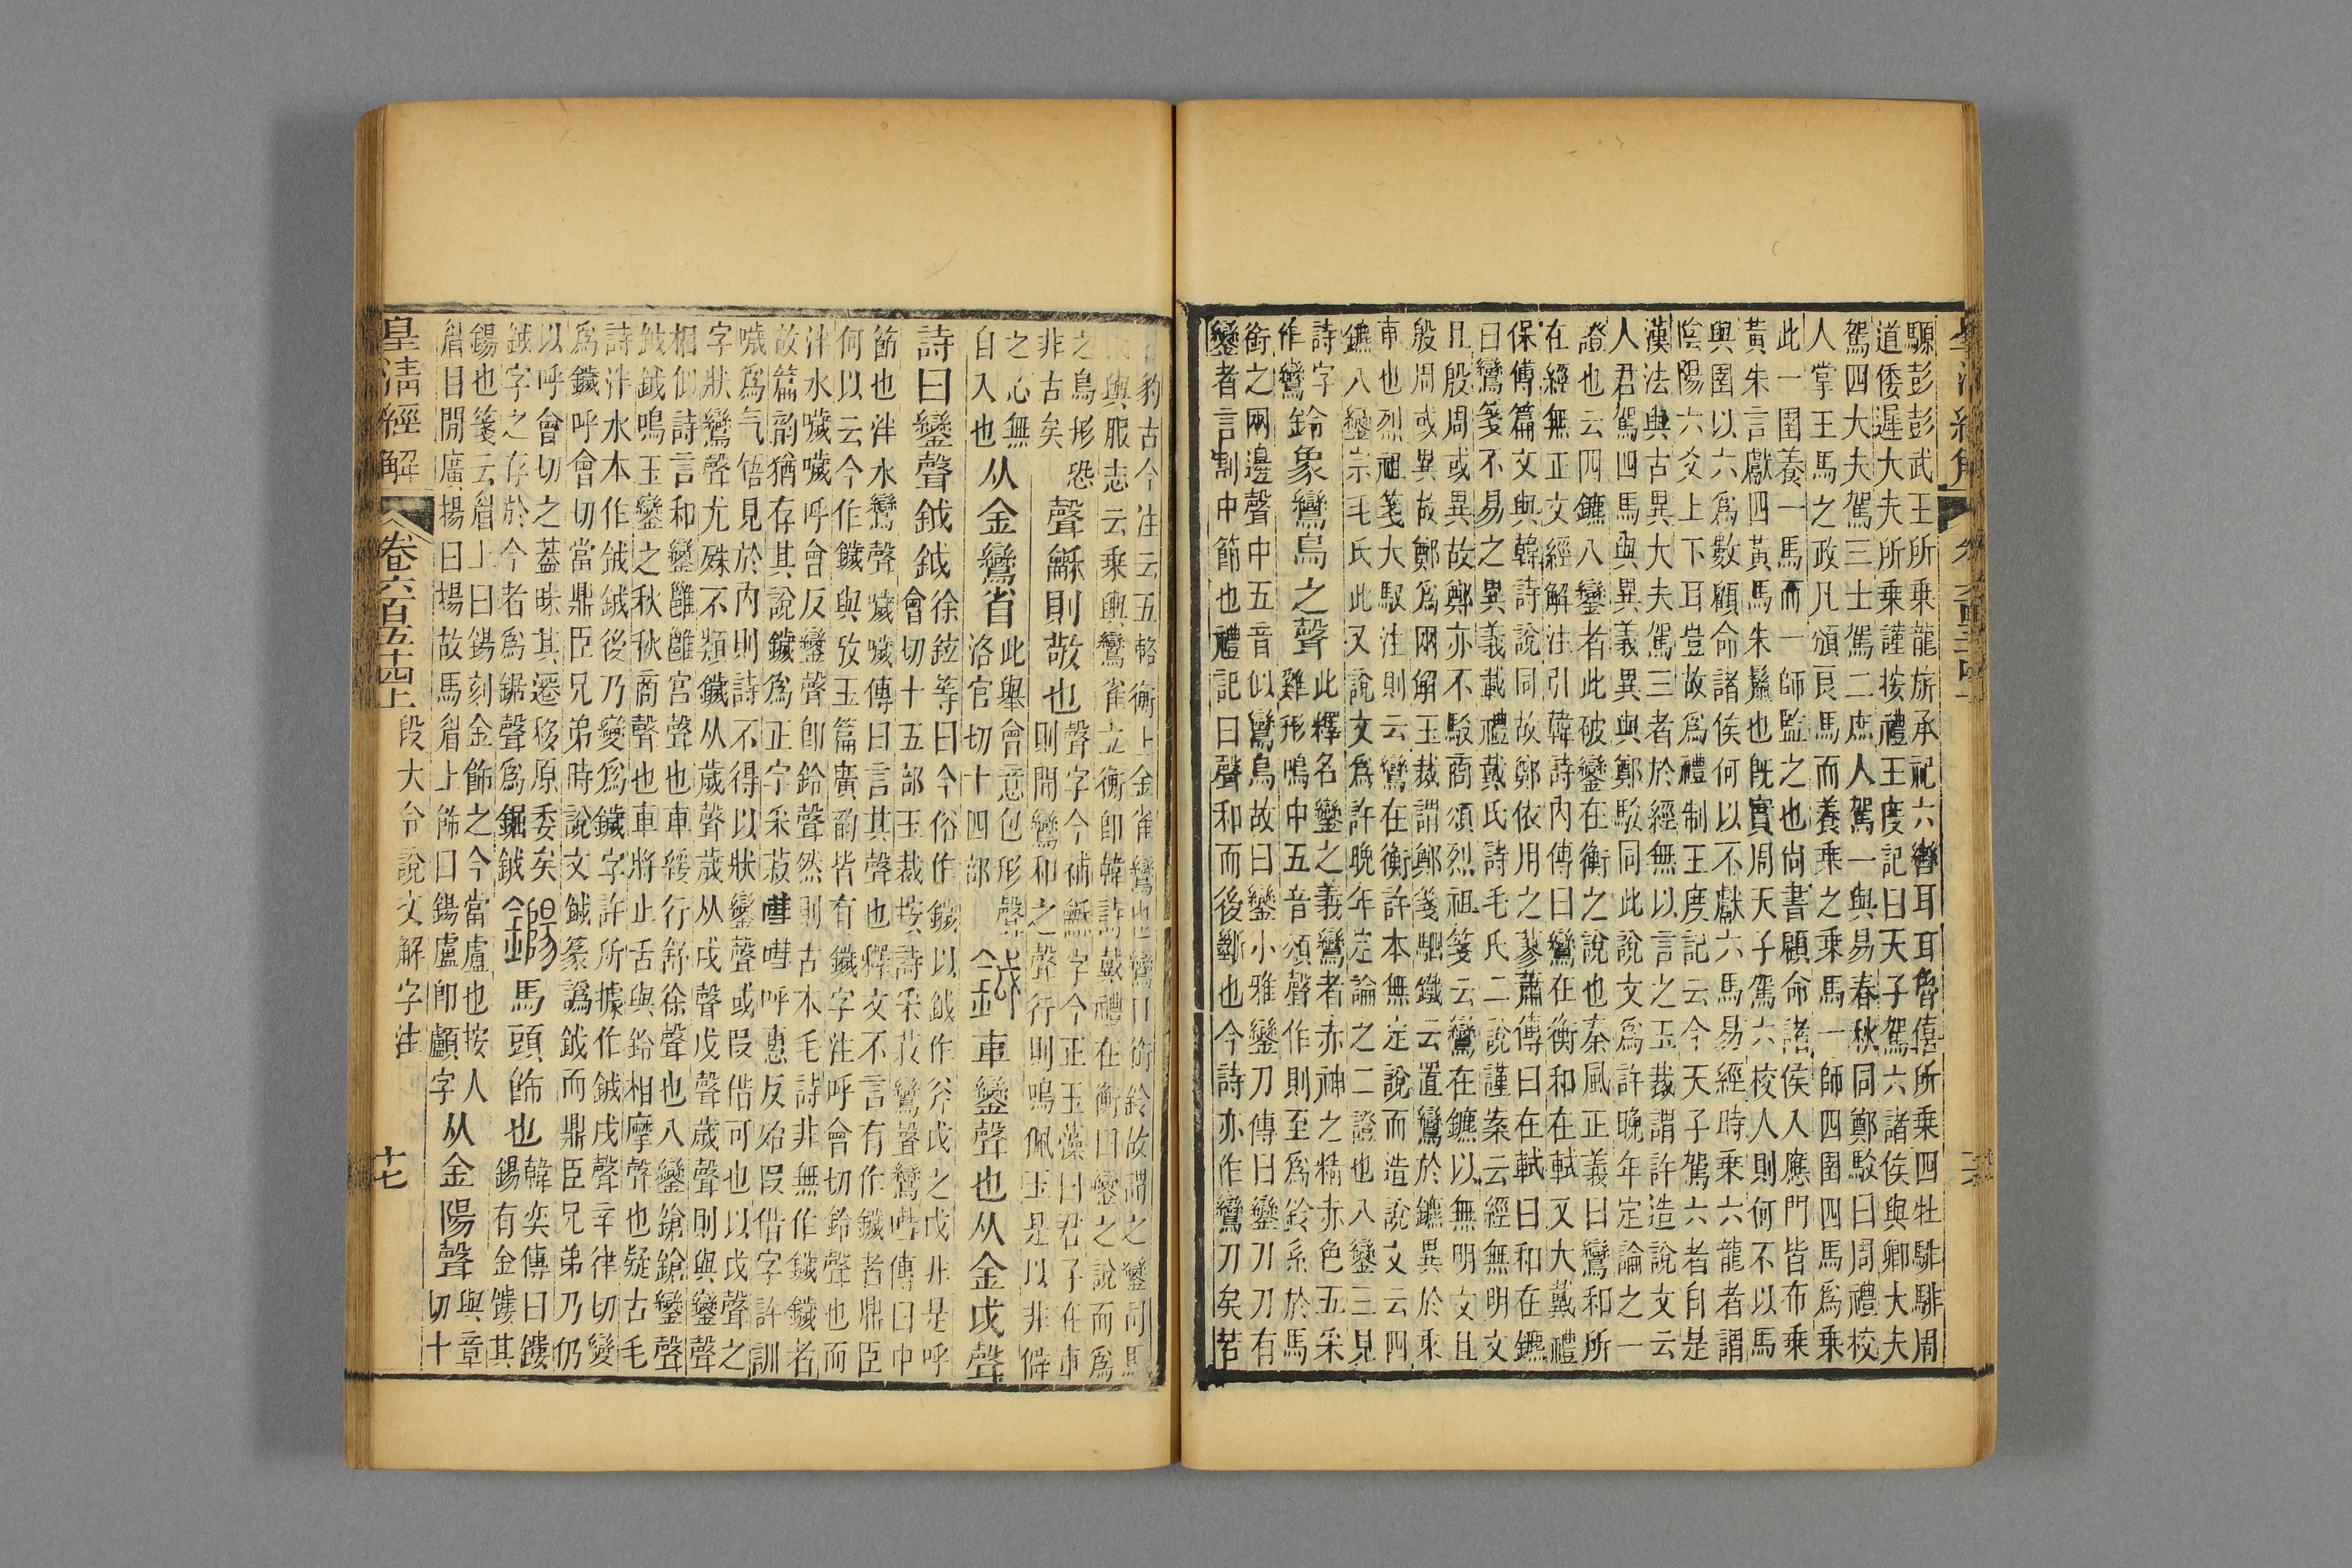 騵彭彭武王所乘龍旂承祀六轡耳耳魯僖所乘四牡騑騑周
道倭遲大夫所乘謹按禮王度記曰天子駕六諸侯與卿大夫
駕四大夫駕三士駕二庶人駕一與易春秋同鄭駁曰周禮校
人掌王馬之政凡頒良馬而養乘之乘馬一師四圉四馬爲乘
此一圉養一馬而一師監之也尙書顧命諸侯入應門皆布乘
黃朱言獻四黃馬朱鬣也旣實周天子駕六校人則何不以馬
與圉以六爲數顧命諸侯何以不獻六馬易經時乘六龍者謂
陰陽六爻上下耳豈故爲禮制王度記云今天子駕六者自是
漢法與古異大夫駕三者於經無以言之玉裁謂許造說文云
人君駕四馬與異義異與鄭駁同此說文爲許晚年定論之一
證也云四鑣八鑾者此破鑾在衡之說也秦風正義曰鸞和所
在經無正文經解注引韓詩內傳曰鸞在衡和在軾又大戴禮
保傅篇文與韓詩說同故鄭依用之蓼蕭傳曰在軾曰和在鑣
曰鸞箋不易之異義載禮戴氏詩毛氏二說謹案云經無明文
且殷周或異故鄭亦不駁商頌烈祖箋云鸞在鑣以無明文且
殷周或異故鄭爲兩解玉裁謂鄭箋駟鐵云置鸞於鑣異於乘
車也烈祖箋大馭注則云鸞在衡許本無定說而造說文云四
鑣八鑾宗毛氏此又說文爲許晚年定論之二證也八鑾三見
詩字
作鸞
鈴象鸞鳥之聲
此釋名鑾之義鸞者赤神之精赤色五采
雞形鳴中五音頌聲作則至爲鈴系於馬
銜之兩邊聲中五音似鸞鳥故曰鑾小雅鑾刀傳曰鑾刀刀有
鑾者言割中節也禮記曰聲和而後斷也今詩亦作鸞刀矣若
豹古今注云五輅衡上金雀鸞也鸞口銜鈴故謂之鑾司馬
輿服志云乘輿鸞雀立衡卽韓詩戴禮在衡曰鑾之說而爲
之鳥形恐
非古矣
聲龢則敬也
聲字今補龢字今正玉藻曰君子在車
則聞鸞和之聲行則鳴佩玉是以非僻
之心無
自入也
从金鸞省
此舉會意包形聲
洛官切十四部
鉞車鑾聲也从金戉聲
詩曰鑾聲鉞鉞
徐鉉等曰今俗作鐬以鉞作斧戉之戉非是呼
會切十五部玉裁按詩采菽鸞聲嘒嘒傳曰中
節也泮水鸞聲噦噦傳曰言其聲也釋文不言有作鐬者鼎臣
何以云今作鐬與攷玉篇廣韵皆有鐬字注呼會切鈴聲也而
泮水噦噦呼會反鑾聲卽鈴聲然則古本毛詩非無作鐬鐬者
故篇韵猶存其說鐬爲正字采菽嘒嘒呼惠反殆叚借字許訓
噦爲气啎見於內則詩不得以狀鑾聲或叚借可也以戉聲之
字狀鸞聲尤殊不類鐬从歲聲歲从戌聲戊聲歲聲則與鑾聲
相似詩言和鑾雝雝宮聲也車緩行舒徐聲也八鑾鎗鎗鑾聲
鉞鉞鳴玉鑾之秋秋商聲也車將止舌與鈴相摩聲也疑古毛
詩泮水本作鉞鉞後乃變爲鐬字許所據作鉞戌聲辛律切變
爲鐬呼會切當鼎臣兄弟時說文鉞篆譌鉞而鼎臣兄弟乃仍
以呼會切之葢昧其遷移原委矣
鉞字之存於今者爲鋸聲爲鋸鉞
鐊馬頭飾也
韓奕傳曰鏤
鍚有金鏤其
鍚也箋云眉上曰鍚刻金飾之今當盧也按人
眉目閒廣揚曰揚故馬眉上飾曰鍚盧卽顱字
从金陽聲
與章
切十
皇清經解
卷六百五十四上
段大令說文解字注
十七